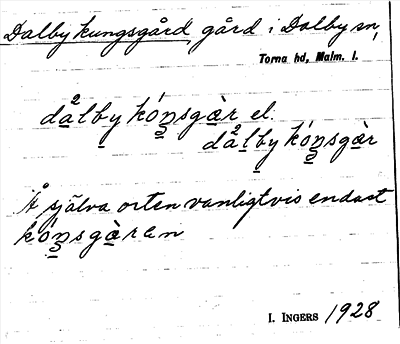 Dalby kungsgård, gård i Dalby sn,
Torna hd, Malm. l.
dålby kóngsgàr el.
dålby kóngsgàr
Å själva orten vanligtvis endast
kóngsgàren
I. INGERS 1928